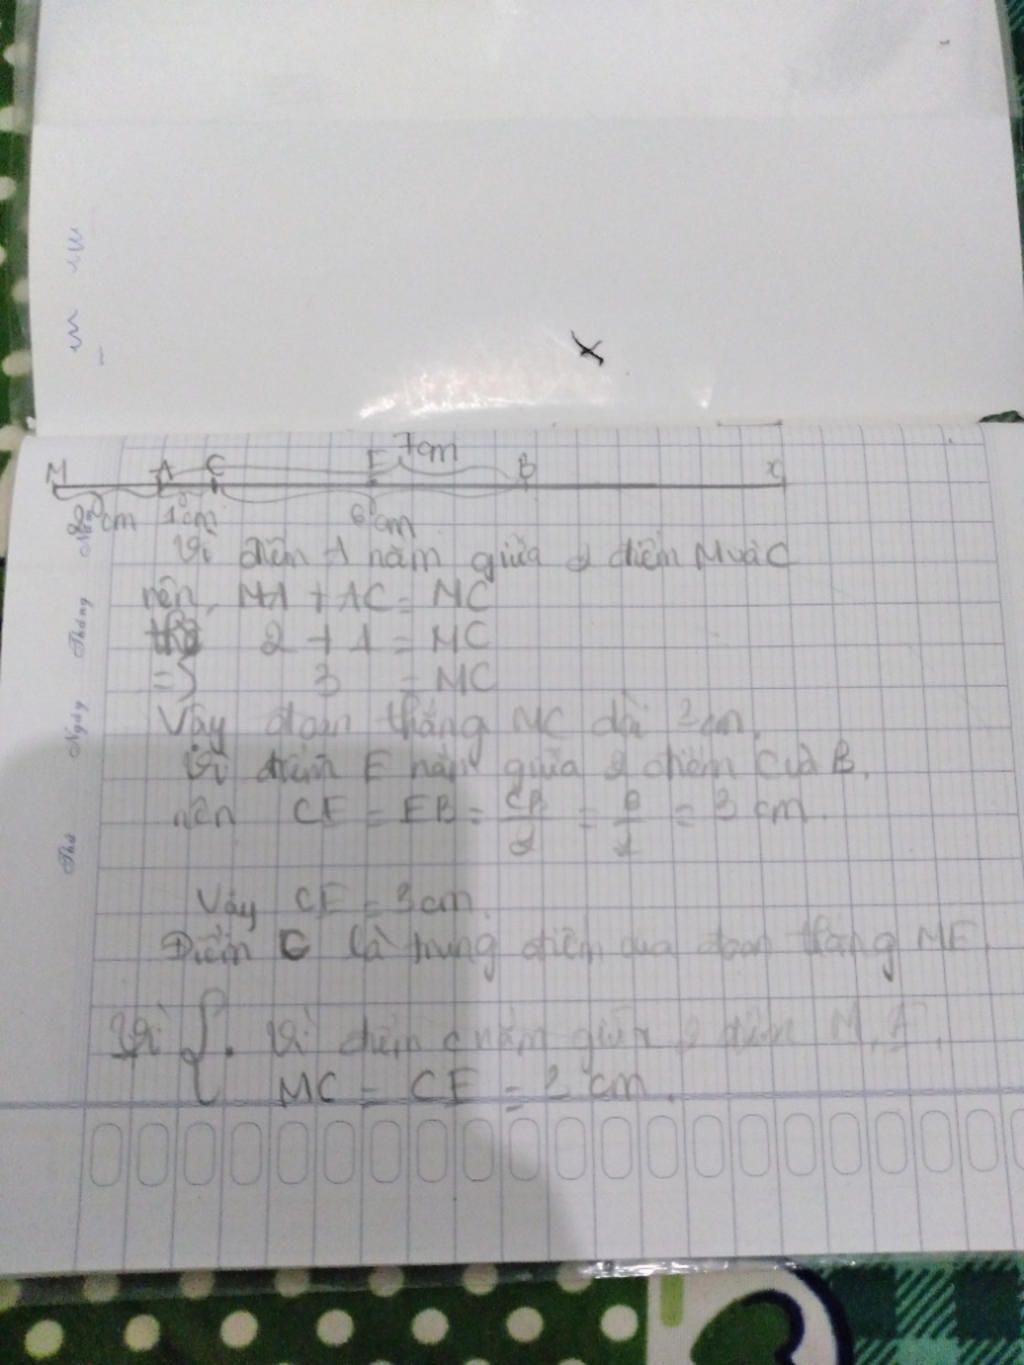 7cm
M A C E B x
2 cm 1 cm 6 cm
Vì điểm A nằm giữa 2 điểm M và C
nên, MA + AC = MC
2 + 1 = MC
=> 3 = MC
Vậy đoạn thẳng MC dài 3 cm.
Vì điểm E nằm giữa 2 điểm C và B.
nên CE = EB = CB/2 = 6/2 = 3 cm.
Vậy CE = 3 cm.
Điểm C là trung điểm của đoạn thẳng ME.
Vì { . Vì điểm C nằm giữa 2 điểm M, E.
MC = CE = 3 cm.
Thứ Ngày Tháng Năm